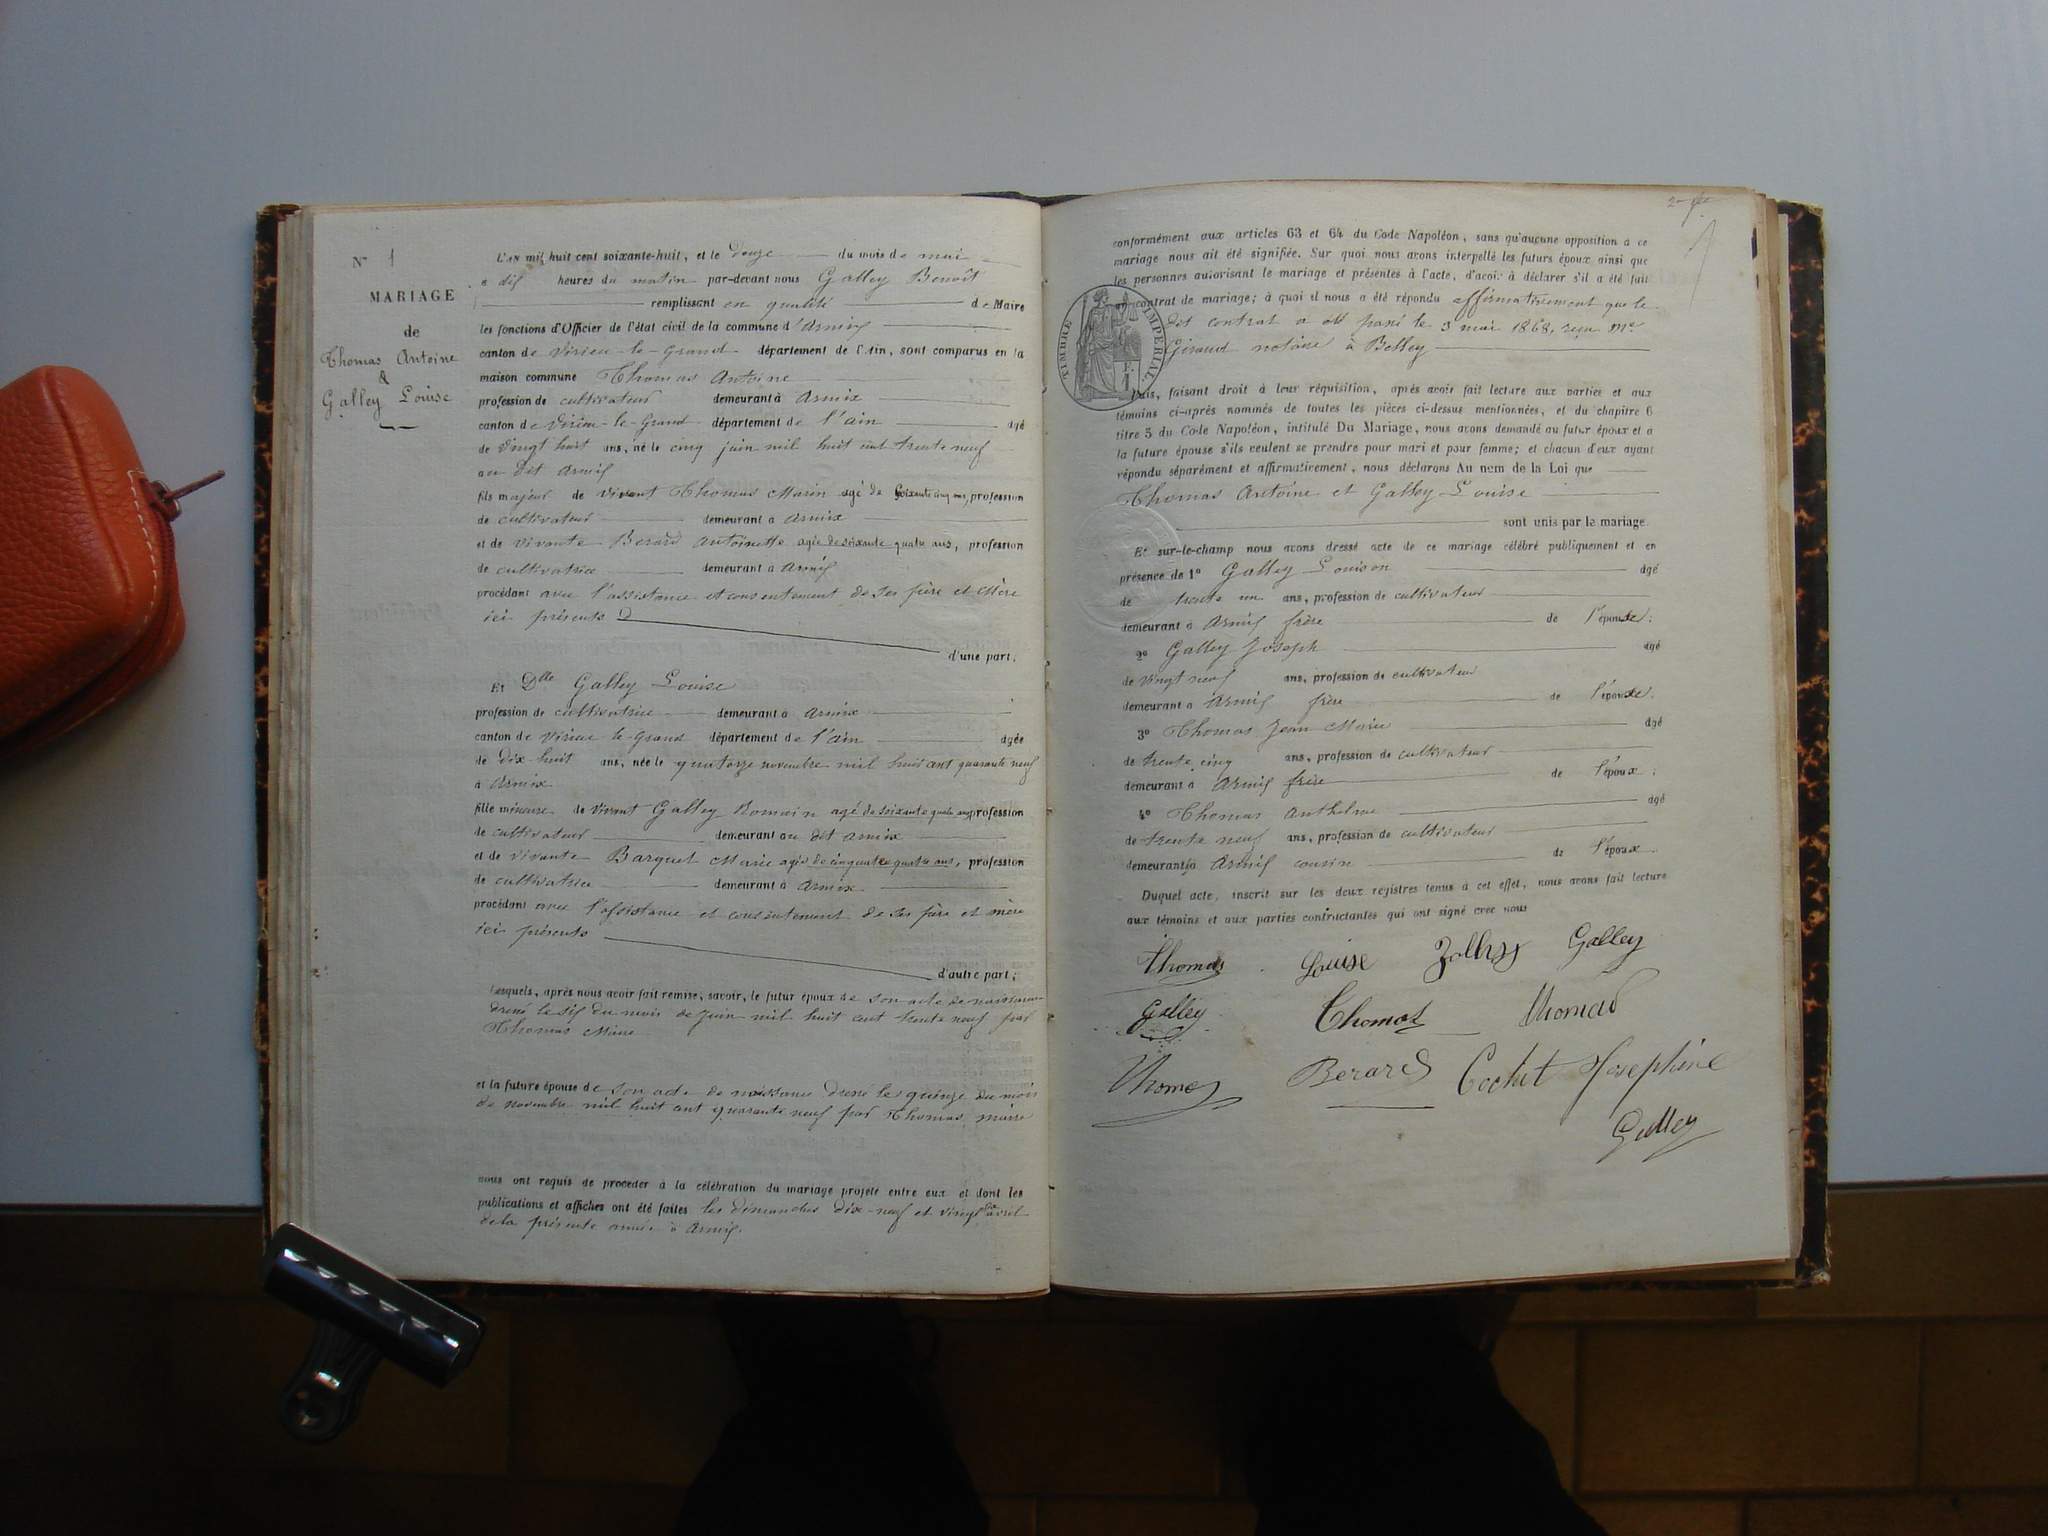 N° 1
MARIAGE
de
Thomas Antoine
&
Galley Louise
L'AN mil huit cent soixante-huit, et le douze du mois de mai
à dix heures du matin par-devant nous Galley Benoît
remplissant en qualité de Maire
les fonctions d'Officier de l'état civil de la commune d'Armix
canton de Virieu-le-Grand département de l'Ain, sont comparus en la
maison commune Thomas Antoine
profession de cultivateur demeurant à Armix
canton de Virieu-le-Grand département de l'ain âgé
de vingt huit ans, né le cinq juin mil huit cent trente neuf
au dit Armix
fils majeur de vivant Thomas Marin agé de soixante cinq ans, profession
de cultivateur demeurant à Armix
et de vivante Berard Antoinette agée de soixante quatre ans, profession
de cultivatrice demeurant à Armix
procédant avec l'assistance et consentement de ses père et Mère
ici présents
d'une part;
Et Dlle Galley Louise
profession de cultivatrice demeurant à Armix
canton de Virieu le-Grand département de l'ain âgée
de dix-huit ans, née le quatorze novembre mil huit cent quarante neuf
à Armix
fille mineure de vivant Galley Romain agé de soixante quatre ans, profession
de cultivateur demeurant au dit Armix
et de vivante Barquet Marie agée de cinquante quatre ans, profession
de cultivatrice demeurant à Armix
procédant avec l'assistance et consentement de ses père et mère
ici présents
d'autre part;
Lesquels, après nous avoir fait remise, savoir, le futur époux de son acte de naissance
dressé le six du mois de Juin mil huit cent trente neuf par
Thomas Maire
et la future épouse de son acte de naissance dressé le quinze du mois
de novembre mil huit cent quarante neuf par Thomas, maire
nous ont requis de procéder à la célébration du mariage projeté entre eux et dont les
publications et affiches ont été faites les dimanches dix-neuf et vingt six avril
de la présente année à Armix.
conformément aux articles 63 et 64 du Code Napoléon, sans qu'aucune opposition à ce
mariage nous ait été signifiée. Sur quoi nous avons interpellé les futurs époux ainsi que
les personnes autorisant le mariage et présentes à l'acte, d'avoir à déclarer s'il a été fait
un contrat de mariage; à quoi il nous a été répondu affirmativement que le
dit contrat a été passé le 3 mai 1868, reçu Me
Giraud notaire à Belley
TIMBRE IMPÉRIAL
Puis, faisant droit à leur réquisition, après avoir fait lecture aux parties et aux
témoins ci-après nommés de toutes les pièces ci-dessus mentionnées, et du chapitre 6
titre 5 du Code Napoléon, intitulé Du Mariage, nous avons demandé au futur époux et à
la future épouse s'ils veulent se prendre pour mari et pour femme; et chacun d'eux ayant
répondu séparément et affirmativement, nous déclarons Au nom de la Loi que
Thomas Antoine et Galley Louise
sont unis par le mariage.
Et sur-le-champ nous avons dressé acte de ce mariage célébré publiquement et en
présence de 1° Galley Louison âgé
de trente un ans, profession de cultivateur
demeurant à Armix frère de l'épouse;
2° Galley Joseph âgé
de vingt neuf ans, profession de cultivateur
demeurant à Armix frère de l'épouse;
3° Thomas Jean Marie âgé
de trente cinq ans, profession de cultivateur
demeurant à Armix frère de l'époux;
4° Thomas Anthelme âgé
de trente neuf ans, profession de cultivateur
demeurant à Armix cousin de l'époux
Duquel acte, inscrit sur les deux registres tenus à cet effet, nous avons fait lecture
aux témoins et aux parties contractantes qui ont signé avec nous
Thomas Louise Galley Galley
Galley Thomas Thomas
Thomas Berard Cochet Josephine
Galley